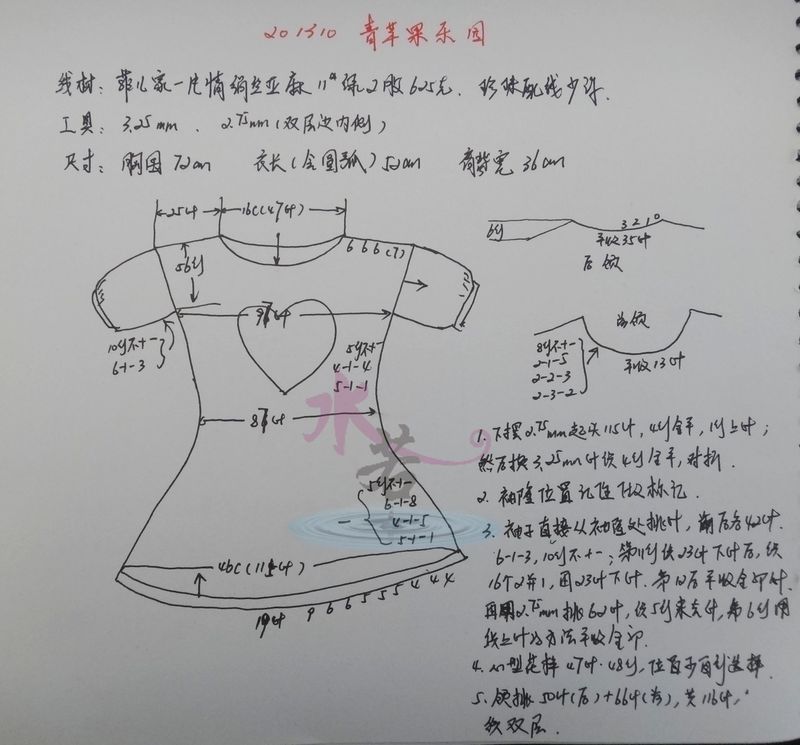 201310 青苹果乐园
线材：菲儿家一片情绢丝亚麻11#绿2股625克、珍珠配线少许.
工具：3.25mm、2.75mm（双层边内侧）
尺寸：胸围72cm 衣长（含圆弧）52cm 肩背宽36cm
25针
16C（47针）
6行
3 2 1 0
平收35针
后领
56行
6 6 6（7）
97针
10行不+-
6-1-3
5行不+-
4-1-4
5-1-1
87针
前领
8行不+-
2-1-5
2-2-3
2-3-2
平收13针
水若
5行不+-
6-1-8
4-1-5
5-1-1
46C（115针）
19针 9 6 6 5 5 5 4 4 4
1. 下摆2.75mm起头115针，4行全平，1行上针；
然后换3.25mm针织4行全平，对折.
2. 袖隆位置记住仅标记.
3. 袖子直接从袖隆处挑针，前后各42针.
6-1-3，10行不+-；第11行织23针下针后，织
16个2并1，再23针下针.第12行平收全部针.
再用2.75mm挑62针，织5行来克针，第6行用
线上针的方法平收全部.
4. 心型花样47针·48行，位置可自行选择.
5. 领挑50针（后）+66针（前），共116针，
织双层.